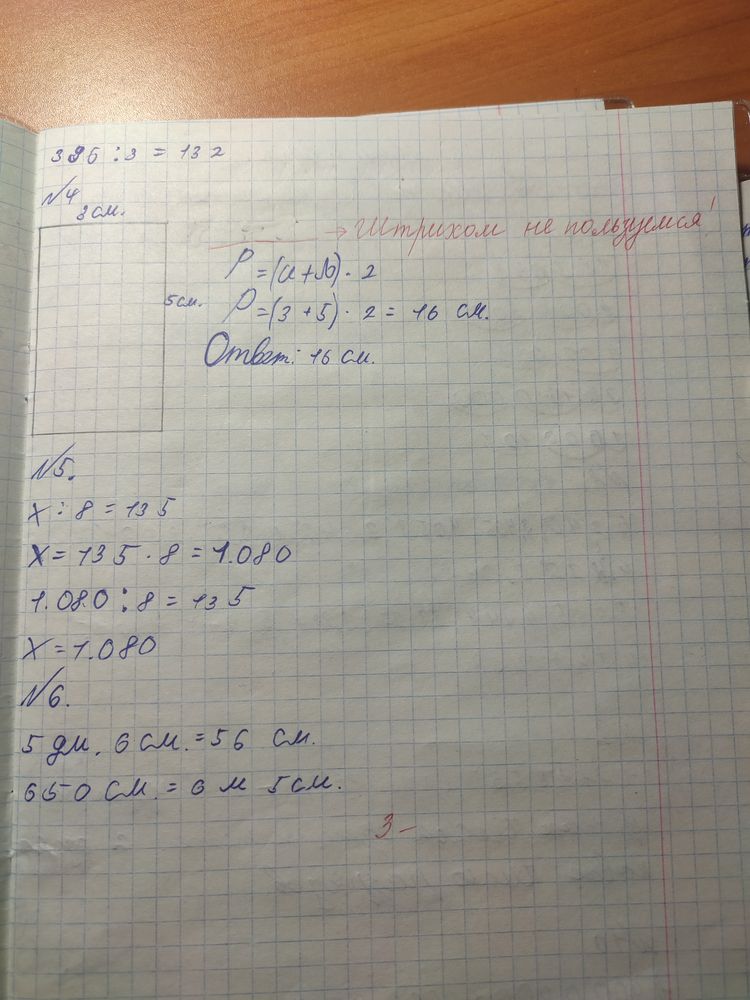 396 : 3 = 132
№4
3 см.
→ Штрихом не пользуемся!
P = (a + b) · 2
5 см.
P = (3 + 5) · 2 = 16 см.
Ответ: 16 см.
№5.
x : 8 = 135
x = 135 · 8 = 1.080
1.080 : 8 = 135
x = 1.080
№6.
5 дм. 6 см. = 56 см.
650 см. = 6 м 5 см.
3-